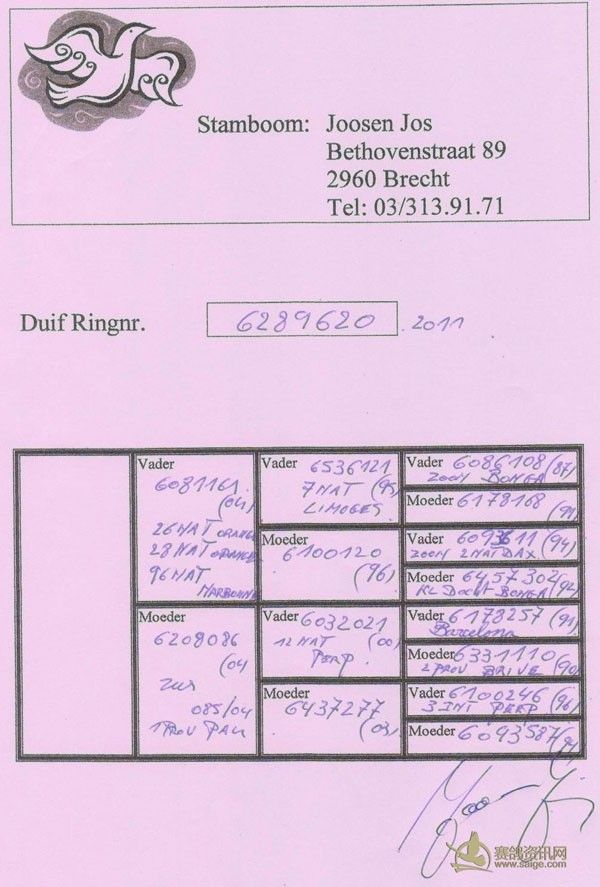 Stamboom: Joosen Jos
Bethovenstraat 89
2960 Brecht
Tel: 03/313.91.71
Duif Ringnr. 6289620 .2011
Vader
6081161
(04)
26 NAT ORANGE
28 NAT ORANGE
96 NAT
NARBONNE
Moeder
6208086
(04
zus
085/04
1 PROV PAU
Vader 6536121
7 NAT (95)
LIMOGES
Moeder
6100120
(96)
Vader 6032021
12 NAT (00)
PERP.
Moeder
6437277
(03)
Vader 6086108 (87)
ZOON BONGA
Moeder 6178168
Vader (94)
ZOON 2 NAT DAX
Moeder 6457302 (92)
KL DOCHT BONGA
Vader 6178257 (91)
Barcelona
Moeder 6331110
2 PROV BRIVE (90)
Vader 6100246 (96)
3 INT PERP
Moeder 6093587
赛鸽资讯网
www.saige.com